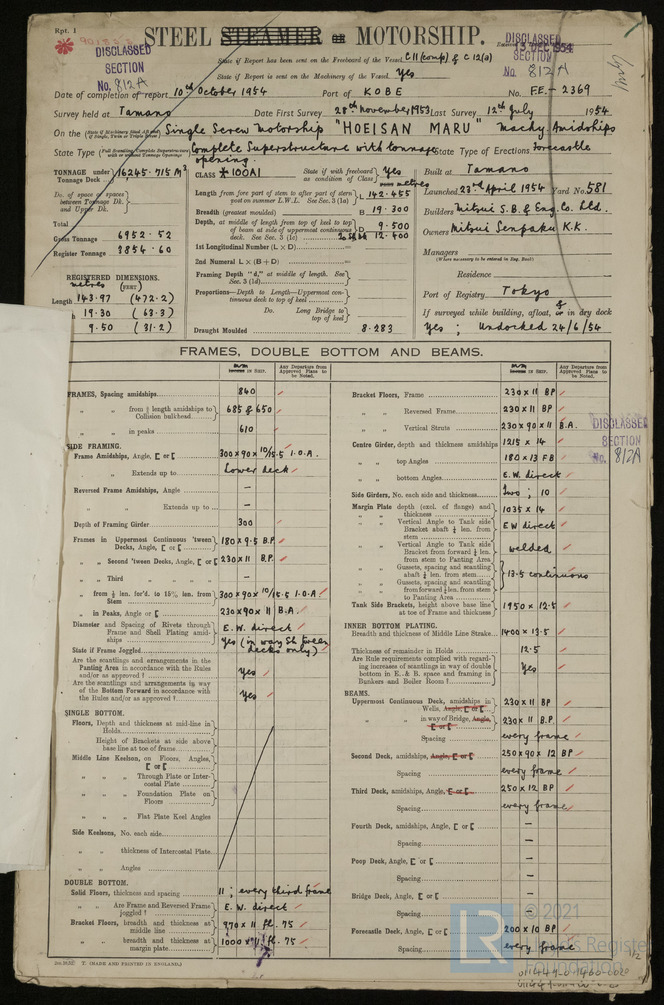 Rpt. 1
STEEL STEAMER OR MOTORSHIP.
DISCLASSED SECTION No. 812A
DISCLASSED
13 DEC 1954
SECTION
No. 812A
State if Report has been sent on the Freeboard of the Vessel C11 (comp) & C12(a)
State if Report is sent on the Machinery of the Vessel. Yes
Date of completion of report 10th October 1954 Port of KOBE No. F.E.- 2369
Survey held at Tamano Date First Survey 28th November 1953 Last Survey 12th July 1954
On the Single Screw Motorship "HOEISAN MARU" Machy. Amidships
State Type Complete Superstructure with tonnage opening. State Type of Erections. Forecastle
TONNAGE under Tonnage Deck 16245.715 M³
No. of space or spaces between Tonnage Dk. and Upper Dk.
Total
Gross Tonnage 6952.52
Register Tonnage 3854.60
REGISTERED DIMENSIONS.
metres (FEET)
Length 143.97 (472.2)
19.30 (63.3)
9.50 (31.2)
CLASS ✠100A1 State if with freeboard as condition of Class Yes
metres
Length from fore part of stem to after part of stern post on summer L.W.L. See Sec. 3 (1a) L 142.455
Breadth (greatest moulded) B 19.300
Depth, at middle of length from top of keel to top of beam at side of uppermost continuous deck. See Sec. 3 (1c) D 9.500
12.400
1st Longitudinal Number (L × D)
2nd Numeral L × (B + D)
Framing Depth "d," at middle of length. See Sec. 3 (1d)
Proportions—Depth to Length—Uppermost continuous deck to top of keel
Do. Long Bridge to top of keel
Draught Moulded 8.283
Built at Tamano
Launched 23rd April 1954 Yard No. 581
Builders Mitsui S.B. & Eng. Co. Ltd.
Owners Mitsui Senpaku K.K.
Managers
(Where necessary to be entered in Reg. Book)
Residence
Port of Registry Tokyo
If surveyed while building, afloat, & or in dry dock
Yes ; Undocked 24/6/54
FRAMES, DOUBLE BOTTOM AND BEAMS.
IN SHIP. Any Departure from Approved Plans to be Noted.
FRAMES, Spacing amidships 840
" " from ½ length amidships to Collision bulkhead 685 & 650
" " in peaks 610
SIDE FRAMING.
Frame Amidships, Angle, [ or [ 300 x 90 x 10/15.5 I.O.A.
" " Extends up to Lower deck
Reversed Frame Amidships, Angle -
" " Extends up to -
Depth of Framing Girder 300
Frames in Uppermost Continuous 'tween Decks, Angle, [ or [ 180 x 9.5 B.P.
" " Second 'tween Decks, Angle, [ or [ 230 x 11 B.P.
" " Third " " " " -
" " from ½ len. for'd. to 15% len. from Stem 300 x 90 x 10/15.5 I.O.A.
" " in Peaks, Angle or [ 230 x 90 x 11 B.A.
Diameter and Spacing of Rivets through Frame and Shell Plating amidships E.W. direct
State if Frame Joggled Yes (in way Sh tween decks only)
Are the scantlings and arrangements in the Panting Area in accordance with the Rules and/or as approved? Yes
Are the scantlings and arrangements in way of the Bottom Forward in accordance with the Rules and/or as approved? Yes
SINGLE BOTTOM.
Floors, Depth and thickness at mid-line in Holds
Height of Brackets at side above base line at toe of frame
Middle Line Keelson, on Floors, Angles, [ or [
" " " Through Plate or Intercostal Plate
" " " Foundation Plate on Floors
" " " Flat Plate Keel Angles
Side Keelsons, No. each side
" " thickness of Intercostal Plate
" " Angles
DOUBLE BOTTOM.
Solid Floors, thickness and spacing 11 ; every third frame
" " Are Frame and Reversed Frame joggled? E.W. direct
Bracket Floors, breadth and thickness at middle line 970 x 11 fl. 75
" " breadth and thickness at margin plate 1000 x 11 fl. 75
IN SHIP. Any Departure from Approved Plans to be Noted.
Bracket Floors, Frame 230 x 11 BP
" " Reversed Frame 230 x 11 BP
" " Vertical Struts 230 x 90 x 11 B.A.
Centre Girder, depth and thickness amidships 1215 x 14
" " top Angles 180 x 13 FB
" " bottom Angles E.W. direct
Side Girders, No. each side and thickness two ; 10
Margin Plate depth (excl. of flange) and thickness 1035 x 14
" " Vertical Angle to Tank side Bracket abaft ¼ len. from stem EW direct
" " Vertical Angle to Tank side Bracket from forward ¼ len. from stem to Panting Area welded
" " Gussets, spacing and scantling abaft ¼ len. from stem 13.5 continuous
" " Gussets, spacing and scantling from forward ¼ len. from stem to Panting Area
Tank Side Brackets, height above base line at toe of Frame and thickness 1950 x 12.5
INNER BOTTOM PLATING.
Breadth and thickness of Middle Line Strake 1400 x 13.5
Thickness of remainder in Holds 12.5
Are Rule requirements complied with regarding increases of scantlings in way of double bottom in E. & B. space and framing in Bunkers and Boiler Room? Yes
BEAMS.
Uppermost Continuous Deck, amidships in Wells, Angle, [ or [ 230 x 11 BP
" " in way of Bridge, Angle, [ or [ 230 x 11 B.P.
Spacing every frame
Second Deck, amidships, Angle, [ or [ 250 x 90 x 12 BP
Spacing every frame
Third Deck, amidships, Angle, [ or [ 250 x 12 BP
Spacing every frame
Fourth Deck, amidships, Angle, [ or [ -
Spacing -
Poop Deck, Angle, [ or [ -
Spacing -
Bridge Deck, Angle, [ or [ -
Spacing -
Forecastle Deck, Angle, [ or [ 200 x 10 BP
Spacing every frame
DISCLASSED SECTION No. 812A
T. (MADE AND PRINTED IN ENGLAND.)
LR © 2021
Lloyd's Register Foundation
1/2